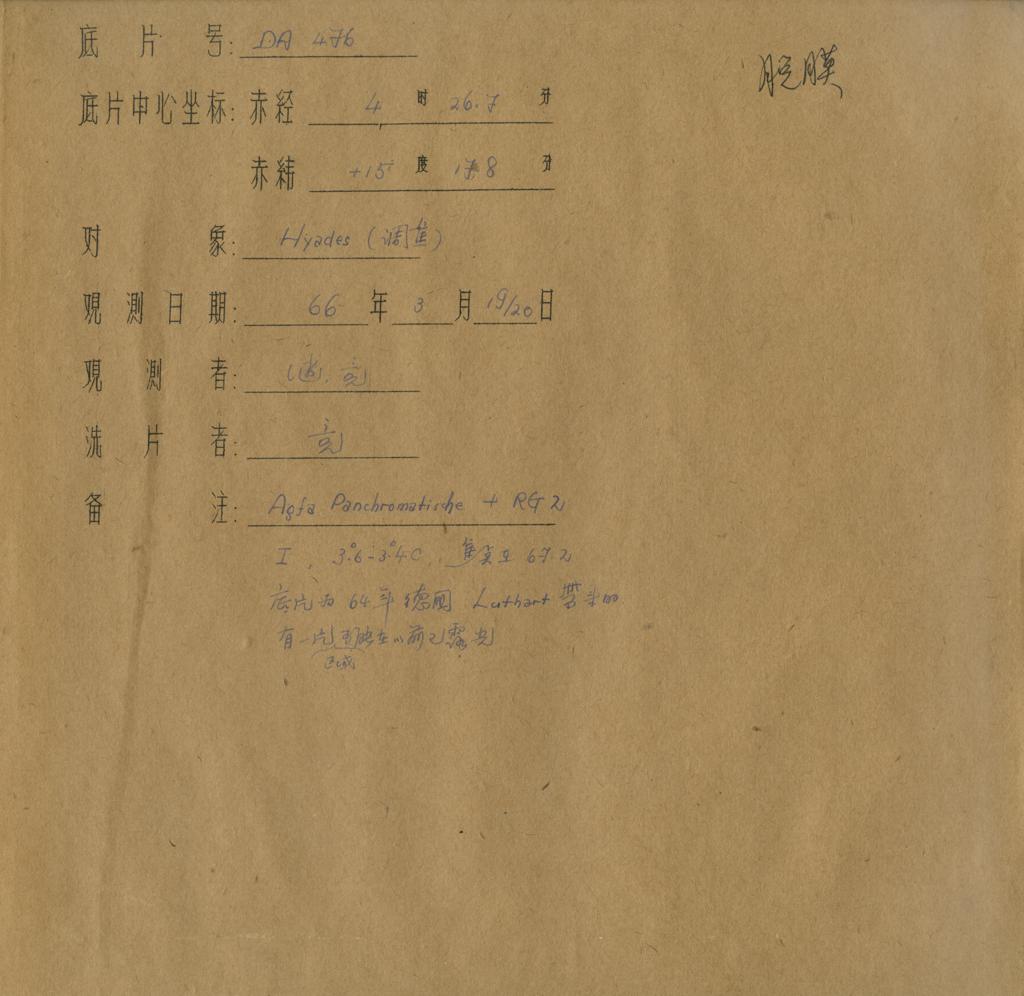 底片号: DA 476
脱膜
底片中心坐标: 赤经 4 时 26.7 分
赤纬 +15 度 17.8 分
对象: Hyades (调焦)
观测日期: 66 年 3 月 19/20 日
观测者: 亮
洗片者: 亮
备注: Agfa Panchromatische + RG2
I, 3.°6-3.°4C, 焦点在 67.2
底片为 64年 德国 Luthart 带来的
有一片 在以前已露光